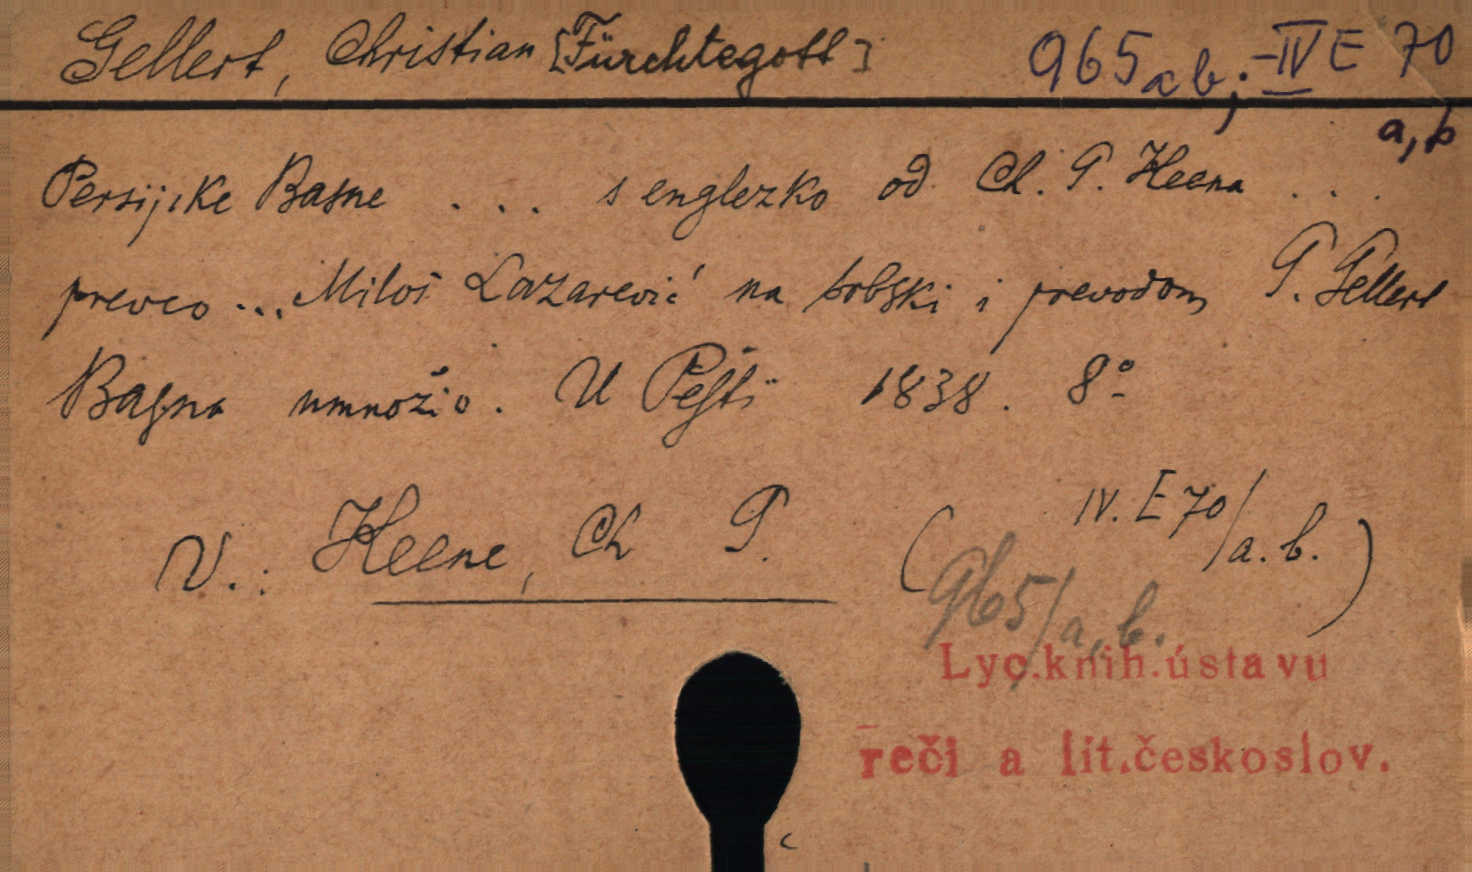 Gellert, Christian [Fürchtegott] 965ab; -IV E 70
a, b
Persijske Basne .... s englezko od Ch. G. Keena ...
preveo ... Miloš Lazarević na srbski i prevodom G. Gellert
Basna umnožio. U Pešti 1838. 8°
V.: Keene, Ch G. (IV. E 70/a. b.)
965/a, b.
Lyc.knih.ústavu
reči a lit.českoslov.